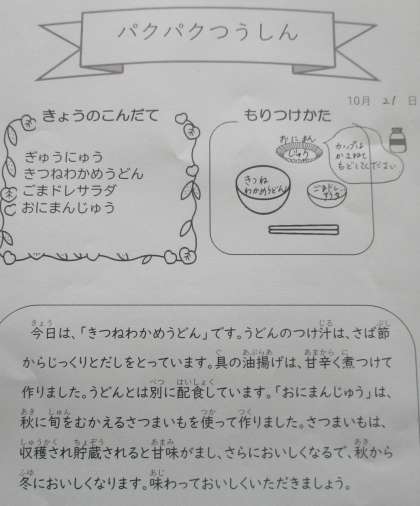 パクパクつうしん
10月 21 日
きょうのこんだて
ぎゅうにゅう
きつねわかめうどん
ごまドレサラダ
おにまんじゅう
もりつけかた
おにまん
じゅう
カップは
かさねて
もどしてください
きつね
わかめうどん
ごまドレ
サラダ
今日は、「きつねわかめうどん」です。うどんのつけ汁は、さば節
からじっくりとだしをとっています。具の油揚げは、甘辛く煮つけて
作りました。うどんとは別に配食しています。「おにまんじゅう」は、
秋に旬をむかえるさつまいもを使って作りました。さつまいもは、
収穫され貯蔵されると甘味がまし、さらにおいしくなるで、秋から
冬においしくなります。味わっておいしくいただきましょう。